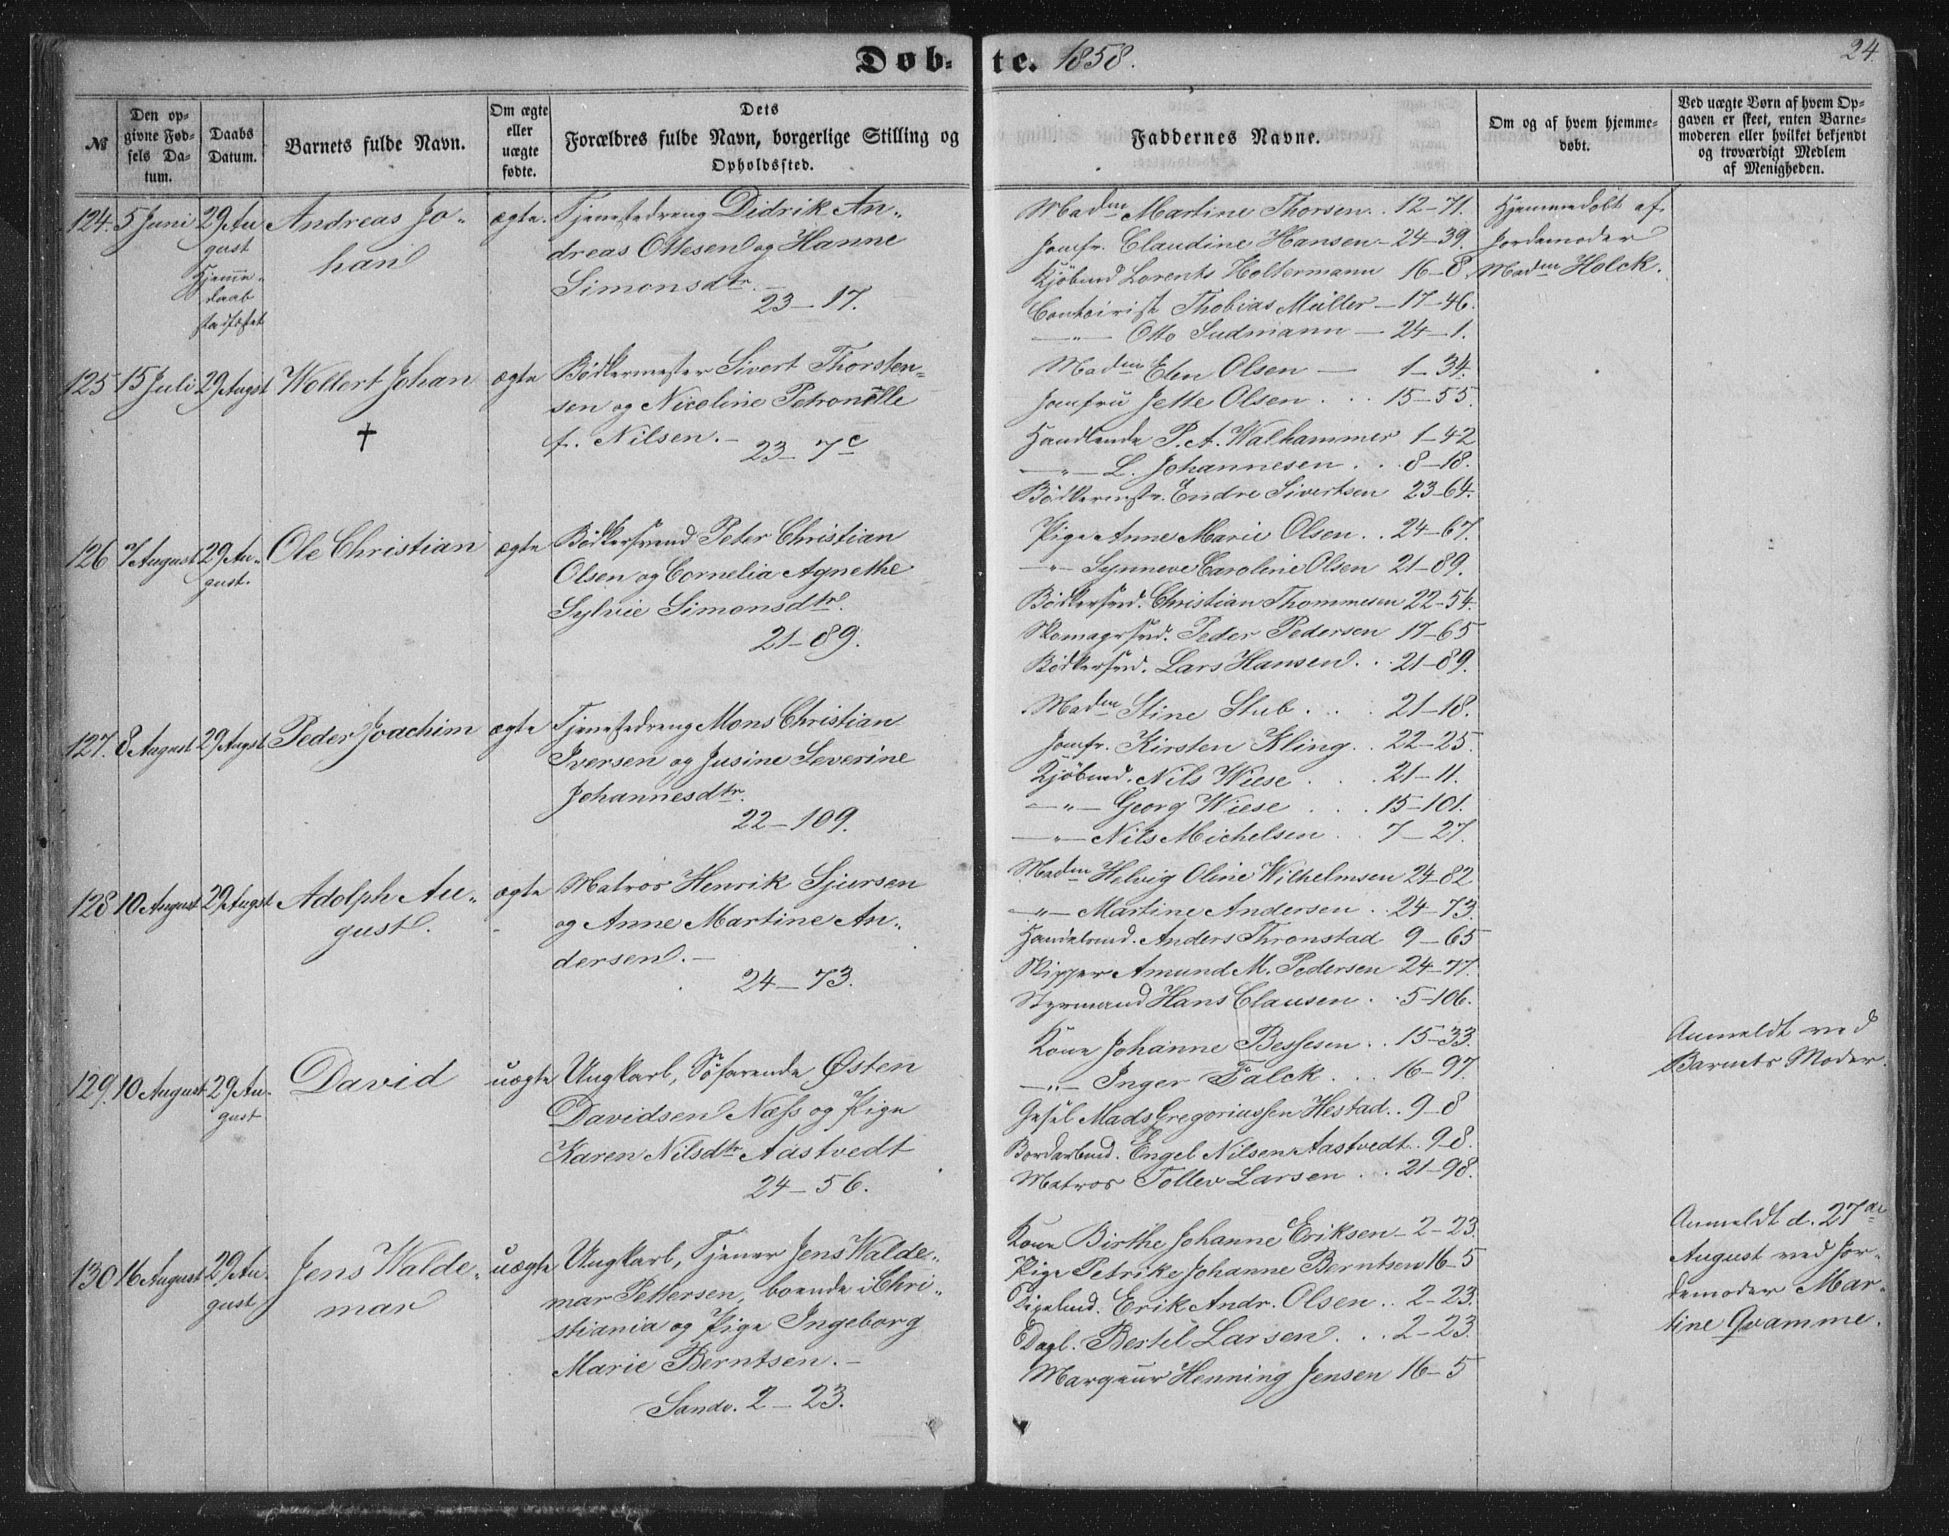 Døb-te. 1858.
24
№
Den op-
givne Fød-
sels Da-
tum.
Daabs
Datum.
Barnets fulde Navn.
Om ægte
eller
uægte
fødte.
Dets
Forældres fulde Navn, borgerlige Stilling og
Opholdssted.
Faddernes Navne.
Om og af hvem hjemme-
døbt.
Ved uægte Børn af hvem Op-
gaven er skeet, enten Barne-
moderen eller hvilket bekjendt
og troværdigt Medlem
af Menigheden.
124. 5 Juni 29 Au
gust
Hjemme-
daab
stadfæstet
Andreas Jo-
han
ægte.
Tjenestedreng Didrik An-
dreas Ottesen og Hanne
Simonsdtr. –
23–17.
Madm Martine Thorsen. . 12–71.
Jomfr. Claudine Hansen – 24–39.
Kjøbmd Lorents Holtermann 16–8.
Contoirist Thobias Müller – 17–46.
–"– Otto Sudmann – 24–1.
Hjemmedøbt af
Jordemoder
Madm Holck.
125 15 Juli 29 Augst Wollert Johan
†
ægte
Bødkermester Sivert Thorsten-
sen og Nicoline Petronelle
f. Nilsen. –
23–7c
Madm Elen Olsen – 1–34.
Jomfru Jette Olsen . . . 15–55.
Handlende P. A. Walhammer 1–42
–"– L. Johannesen . . . 8–18.
Bødkermstr. Endre Sivertsen 23–64.
126 7 August 29 Au-
gust.
Ole Christian
ægte
Bødkersvend Peter Christian
Olsen og Cornelia Agnethe
Sylvie Simonsdtr.
21–89.
Pige Anne Marie Olsen . . 24–67.
–"– Synneve Caroline Olsen 21–89.
Bødkersvd. Christian Thommesen 22–54.
Skomagrsvd. Peder Pedersen 17–65
Bødkersvd. Lars Hansen . . 21–89.
127. 8 August 29 Augst Peder Joachim
ægte
Tjenestedreng Mons Christian
Iversen og Jusine Severine
Johannesdtr.
22–109.
Madm Stine Stub . . . 21–18.
Jomfr. Kirsten Kling . . 22–25.
Kjøbmd. Nils Wiese . . . 21–11.
–"– Georg Wiese . . . 15–101.
–"– Nils Michelsen . . 7–27.
128 10 August 29 Augst Adolph Au-
gust.
ægte
Matros Henrik Sjursen
og Anne Martine An-
dersen. –
24–73.
Madm Helvig Oline Wilhelmsen 24–82
–"– Martine Andersen . . 24–73.
Handelsmd. Anders Thronstad 9–65
Skipper Amund M. Pedersen 24–77.
Styrmand Hans Clausen . . 5–106.
129. 10 August 29 Au-
gust
David
uægte
Ungkarl, Søfarende Østen
Davidsen Næss og Pige
Karen Nilsdtr Aastvedt
24–56.
Kone Johanne Bessesen . . 15–33.
–"– Inger Falck . . . 16–97.
Gesel Mads Gregoriussen Hestad . . 9–8
Engel Nilsen Aastvedt . . 9–8.
Matros Tollev Larsen . . . 21–98.
Anmeldt ved
Barnets Moder.
130 16 August 29 Au-
gust
Jens Walde-
mar
uægte
Ungkarl, Tjener Jens Walde-
mar Pettersen, boende i Chri-
stiania og Pige Ingeborg
Marie Berntsen. –
Sandv. 2–23.
Kone Birthe Johanne Eriksen – 2–23.
Pige Petrike Johanne Berntsen 16–5
Erik Andr. Olsen . . 2–23.
Bestel Larsen . . . 2–23.
Marqueur Henning Jensen 16–5
Anmeldt d. 27de
August ved Jor-
demoder Mar-
tine Qvamme.